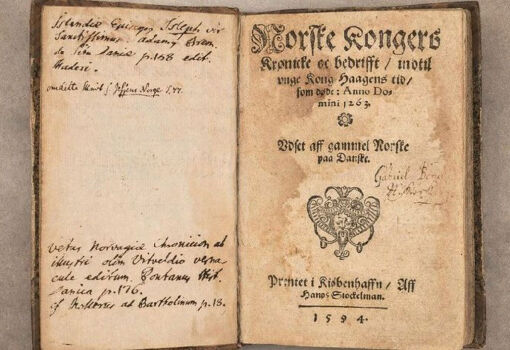 Islandiæ Episcopus Isleph vir
Sanctissimus. adamus Brem.
de Situ Daniæ p. 158 edit.
Maderi.
Vetus Norvagiæ Chronicon ab
illustri olim Vitveldio verna
cule editum. Pontanus Hist.
Danica p. 176.
ad Bartholinum p. 18.
Norske Kongers
Krønicke oc bedrifft / indtil
vnge Kong Haagens tid /
som døde: Anno Do-
mini 1263.
Vdset aff gammel Norske
paa Danske.
Gabriel
Prentet i Kiøbenhaffn / Aff
Hans Stockelman.
1594.